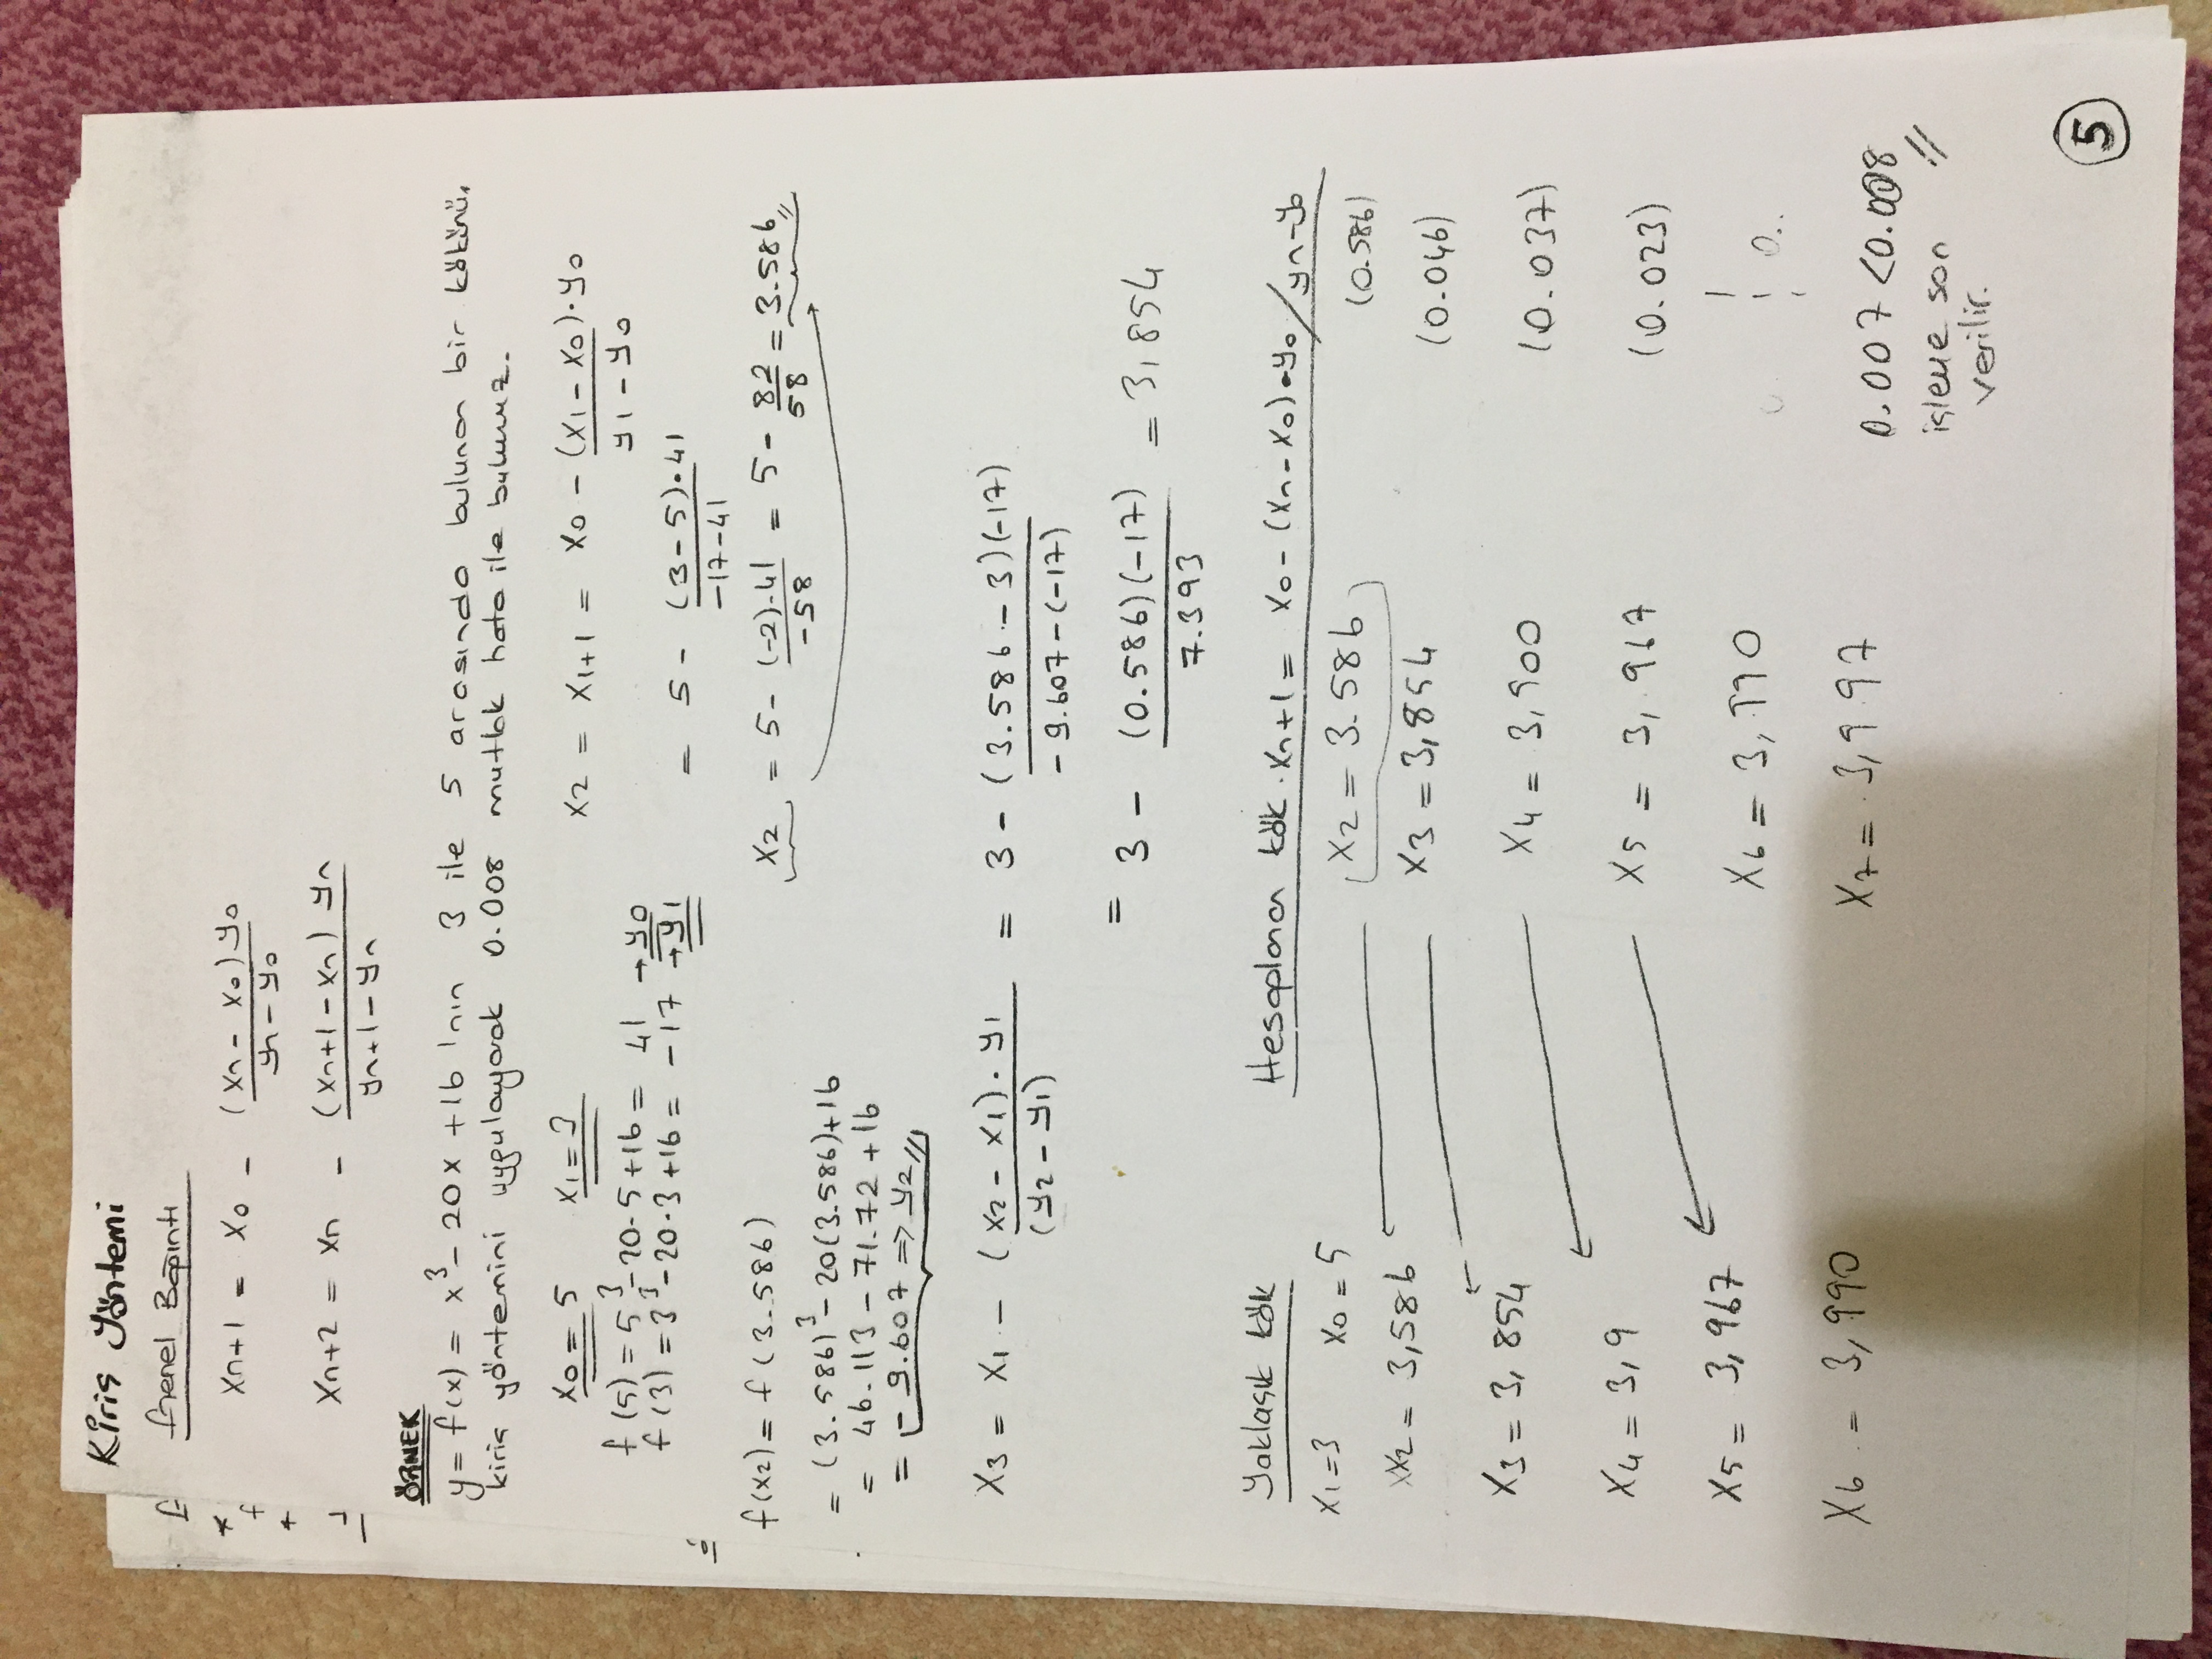 Kiriş Yöntemi
Genel Bağıntı
xn+1 = x0 - (xn - x0) y0 / yn - y0
xn+2 = xn - (xn+1 - xn) yn / yn+1 - yn
ÖRNEK
y = f(x) = x³ - 20x + 16 'nın 3 ile 5 arasında bulunan bir kökünü,
kiriş yöntemini uygulayarak 0.008 mutlak hata ile bulunuz.
x0 = 5 x1 = 3
f(5) = 5³ - 20·5 + 16 = 41 → y0
f(3) = 3³ - 20·3 + 16 = -17 → y1
x2 = x1+1 = x0 - (x1 - x0)·y0 / y1 - y0
= 5 - (3-5)·41 / -17-41
x2 = 5 - (-2)·41 / -58 = 5 - 82/58 = 3.586
f(x2) = f(3.586)
= (3.586)³ - 20(3.586) + 16
= 46.113 - 71.72 + 16
= - 9.607 => y2
x3 = x1 - (x2 - x1)·y1 / (y2 - y1) = 3 - (3.586 - 3)(-17) / -9.607-(-17)
= 3 - (0.586)(-17) / 7.393 = 3,854
Yaklaşık kök Hesaplanan kök xn+1 = x0 - (xn - x0)·y0 / yn - y0
x1 = 3 x0 = 5 x2 = 3.586 (0.586)
x2 = 3,586 x3 = 3,854 (0.046)
x3 = 3,854 x4 = 3,900 (0.037)
x4 = 3,9 x5 = 3,967 (0.023)
x5 = 3,967 x6 = 3,990 0..
x6 = 3,990 x7 = 3,997 0.007 < 0.008
işleme son
verilir.
5